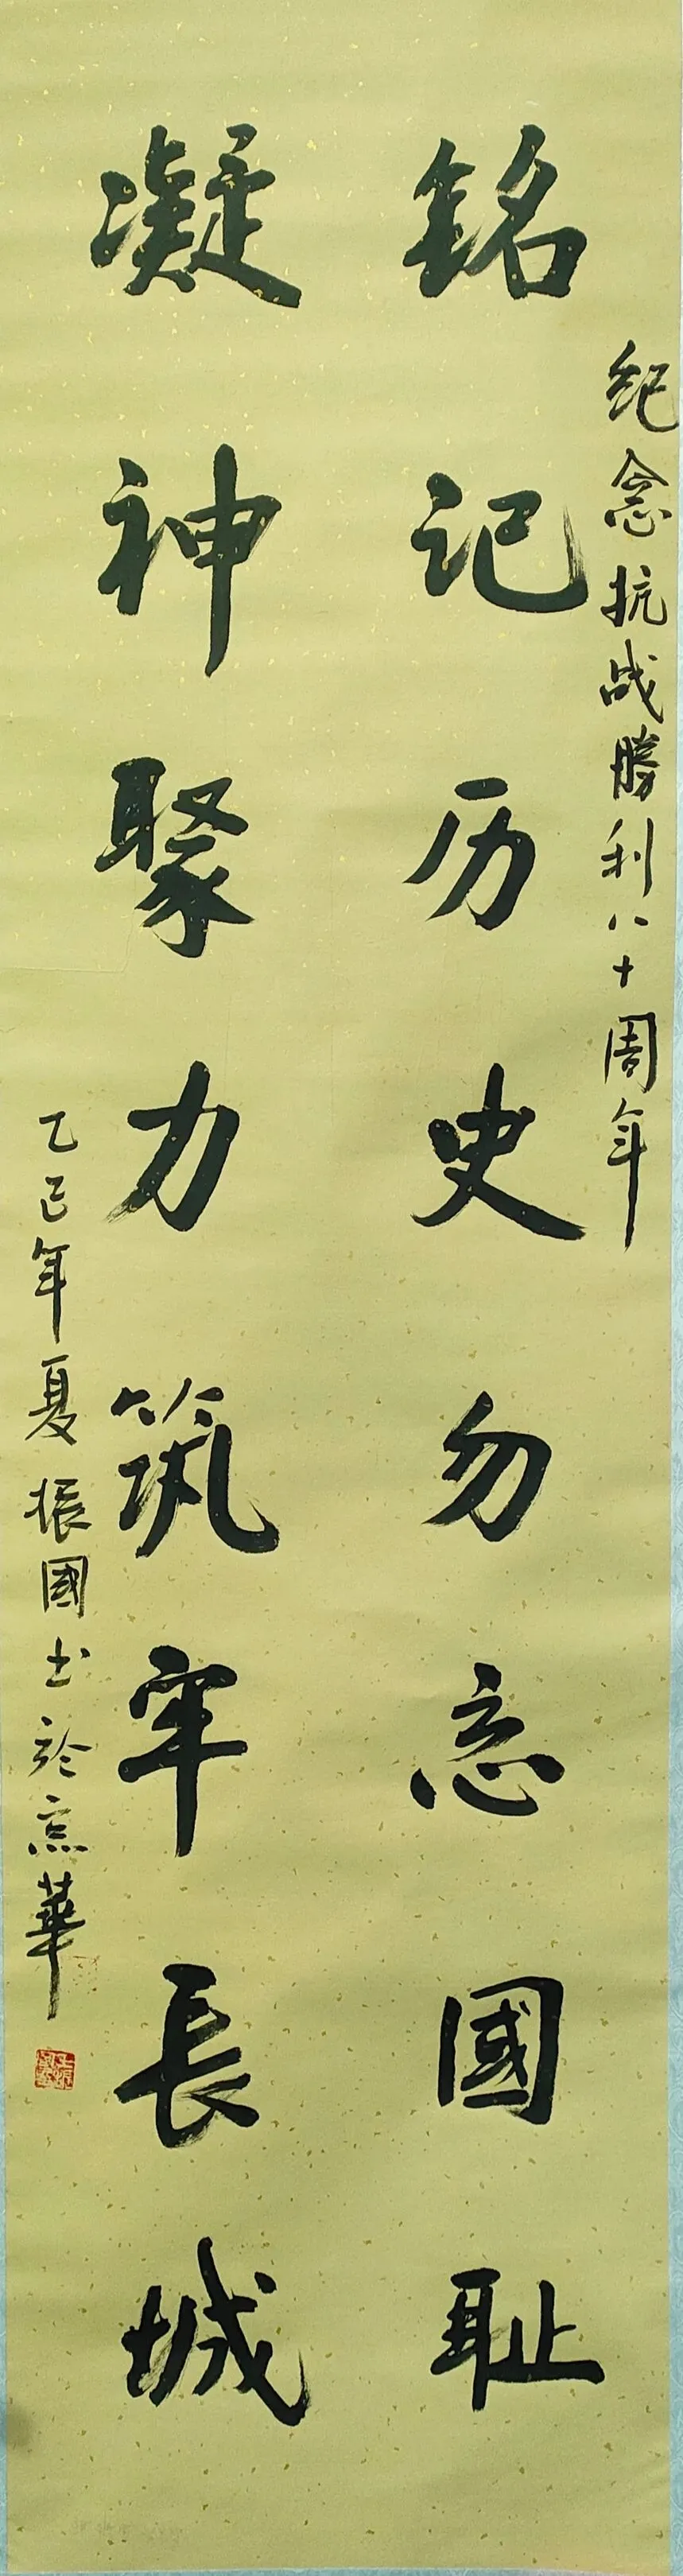 纪念抗战勝利八十周年
銘记历史勿忘國耻
凝神聚力筑牢長城
乙巳年夏振國书於京華